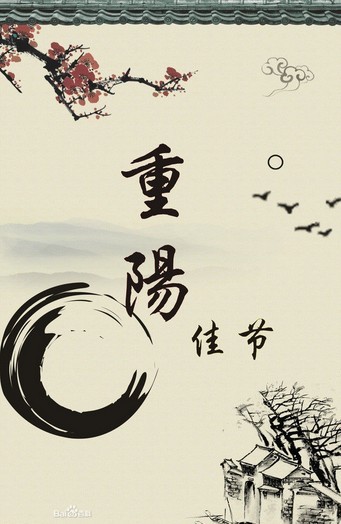 重
陽
佳节
Bai百科